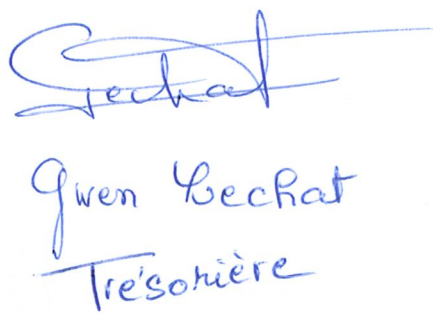 Lechat
Gwen Lechat
Trésorière